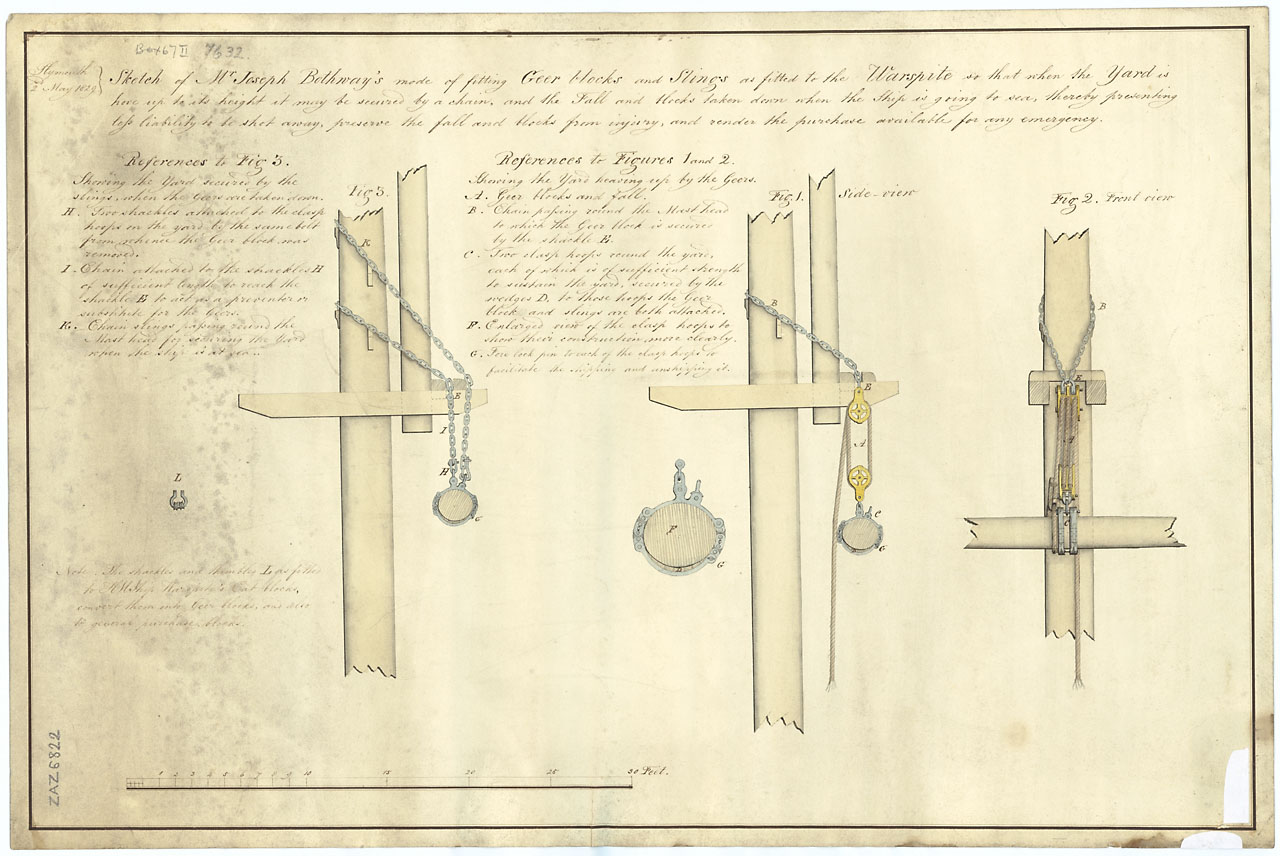 Box 67 II 7632.
Plymouth
2 May 1829
Sketch of Mr. Joseph Bothway's mode of fitting Geer blocks and Slings as fitted to the Warspite so that when the Yard is
hove up to its height it may be secured by a chain, and the Fall and blocks taken down when the Ship is going to sea, thereby presenting
less liability to be shot away, preserve the fall and blocks from injury, and render the purchase available for any emergency.
References to Fig 3.
Shewing the Yard secured by the
slings, when the Geers are taken down.
H. Two shackles attached to the clasp
hoops on the yard by the same bolt
from whence the Geer block was
removed.
I. Chain attached to the shackles H
of sufficient length to reach the
shackle E to act as a preventer or
substitute for the Geers.
K. Chain slings, passing round the
Mast head for securing the Yard
when the ship is at sea.
L
Note. The shackles and thimbles L as fitted
to HM Ship Warspite's Cat blocks,
convert them into Geer blocks, and also
to general purchase blocks.
Fig 3.
K
E
I
H
G
References to Figures 1 and 2.
Shewing the Yard heaving up by the Geers.
A. Geer blocks and fall.
B. Chain passing round the Mast head
to which the Geer block is secured
by the shackle E.
C. Two clasp hoops round the yard,
each of which is of sufficient strength
to sustain the yard, secured by the
wedges D, to those hoops the Geer
block and slings are both attached.
F. Enlarged view of the clasp hoops to
show their construction more clearly.
G. Fore lock pin to each of the clasp hoops to
facilitate the shipping and unshipping it.
Fig. 1. Side-view
B
E
A
C
G
F
D
G
Fig. 2. Front view
B
E
A
C
1 2 3 4 5 6 7 8 9 10 15 20 25 30 Feet.
ZAZ6822